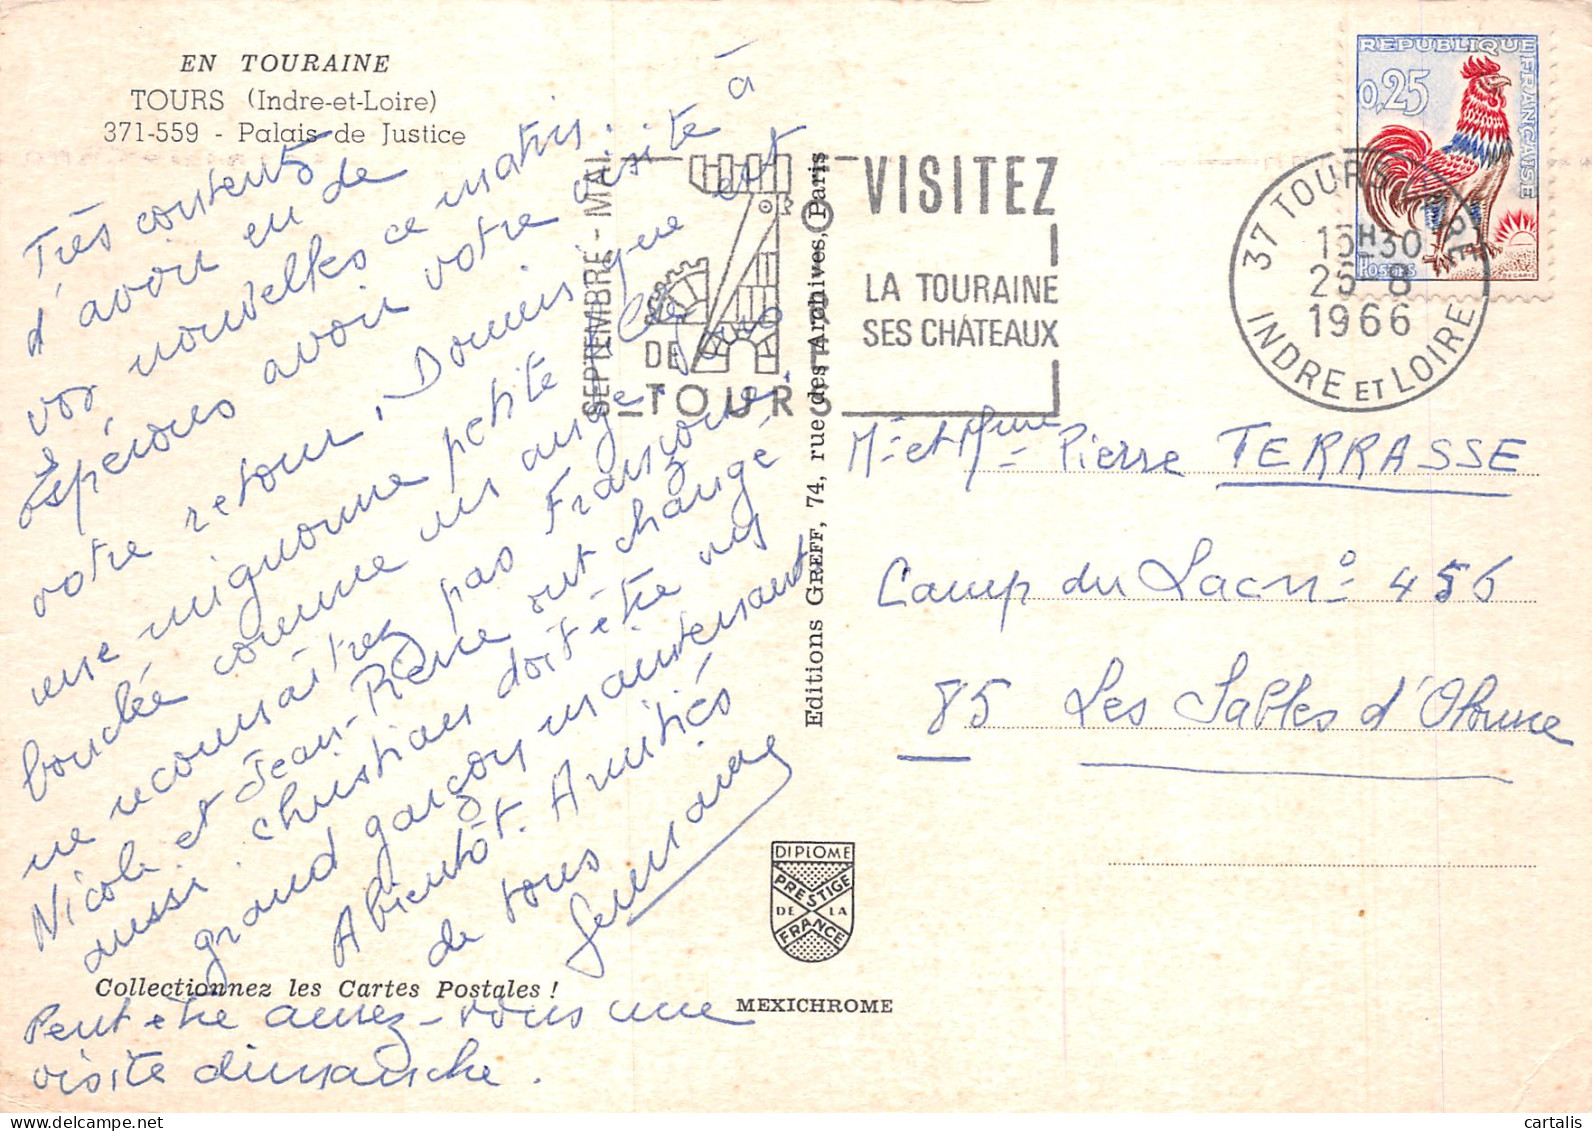 EN TOURAINE
TOURS (Indre-et-Loire)
371-559 - Palais de Justice
Très contents
d'avoir eu de
vos nouvelles ce matin.
Espérons avoir votre visite à
votre retour, Dominique est
une mignonne petite fille
bouclée comme un ange. Vous
ne reconnaîtrez pas Françoise,
Nicole et Jean-Pierre ont changé
aussi. Christian doit être un
grand garçon maintenant
A bientôt. Amitiés
de tous
Germaine
Collectionnez les Cartes Postales !
Peut être aurez-vous une
visite dimanche.
SEPTEMBRE - MAI
DE
TOURS
VISITEZ
LA TOURAINE
SES CHÂTEAUX
Editions GREFF, 74, rue des Archives, Paris
REPUBLIQUE FRANÇAISE
0,25
POSTES
37 TOURS
15H30
26-8
1966
INDRE ET LOIRE
Mr et Mme Pierre TERRASSE
Camp du Lac n° 456
85 Les Sables d'Olonne
DIPLOME
PRESTIGE
DE LA
FRANCE
MEXICHROME
cartalis